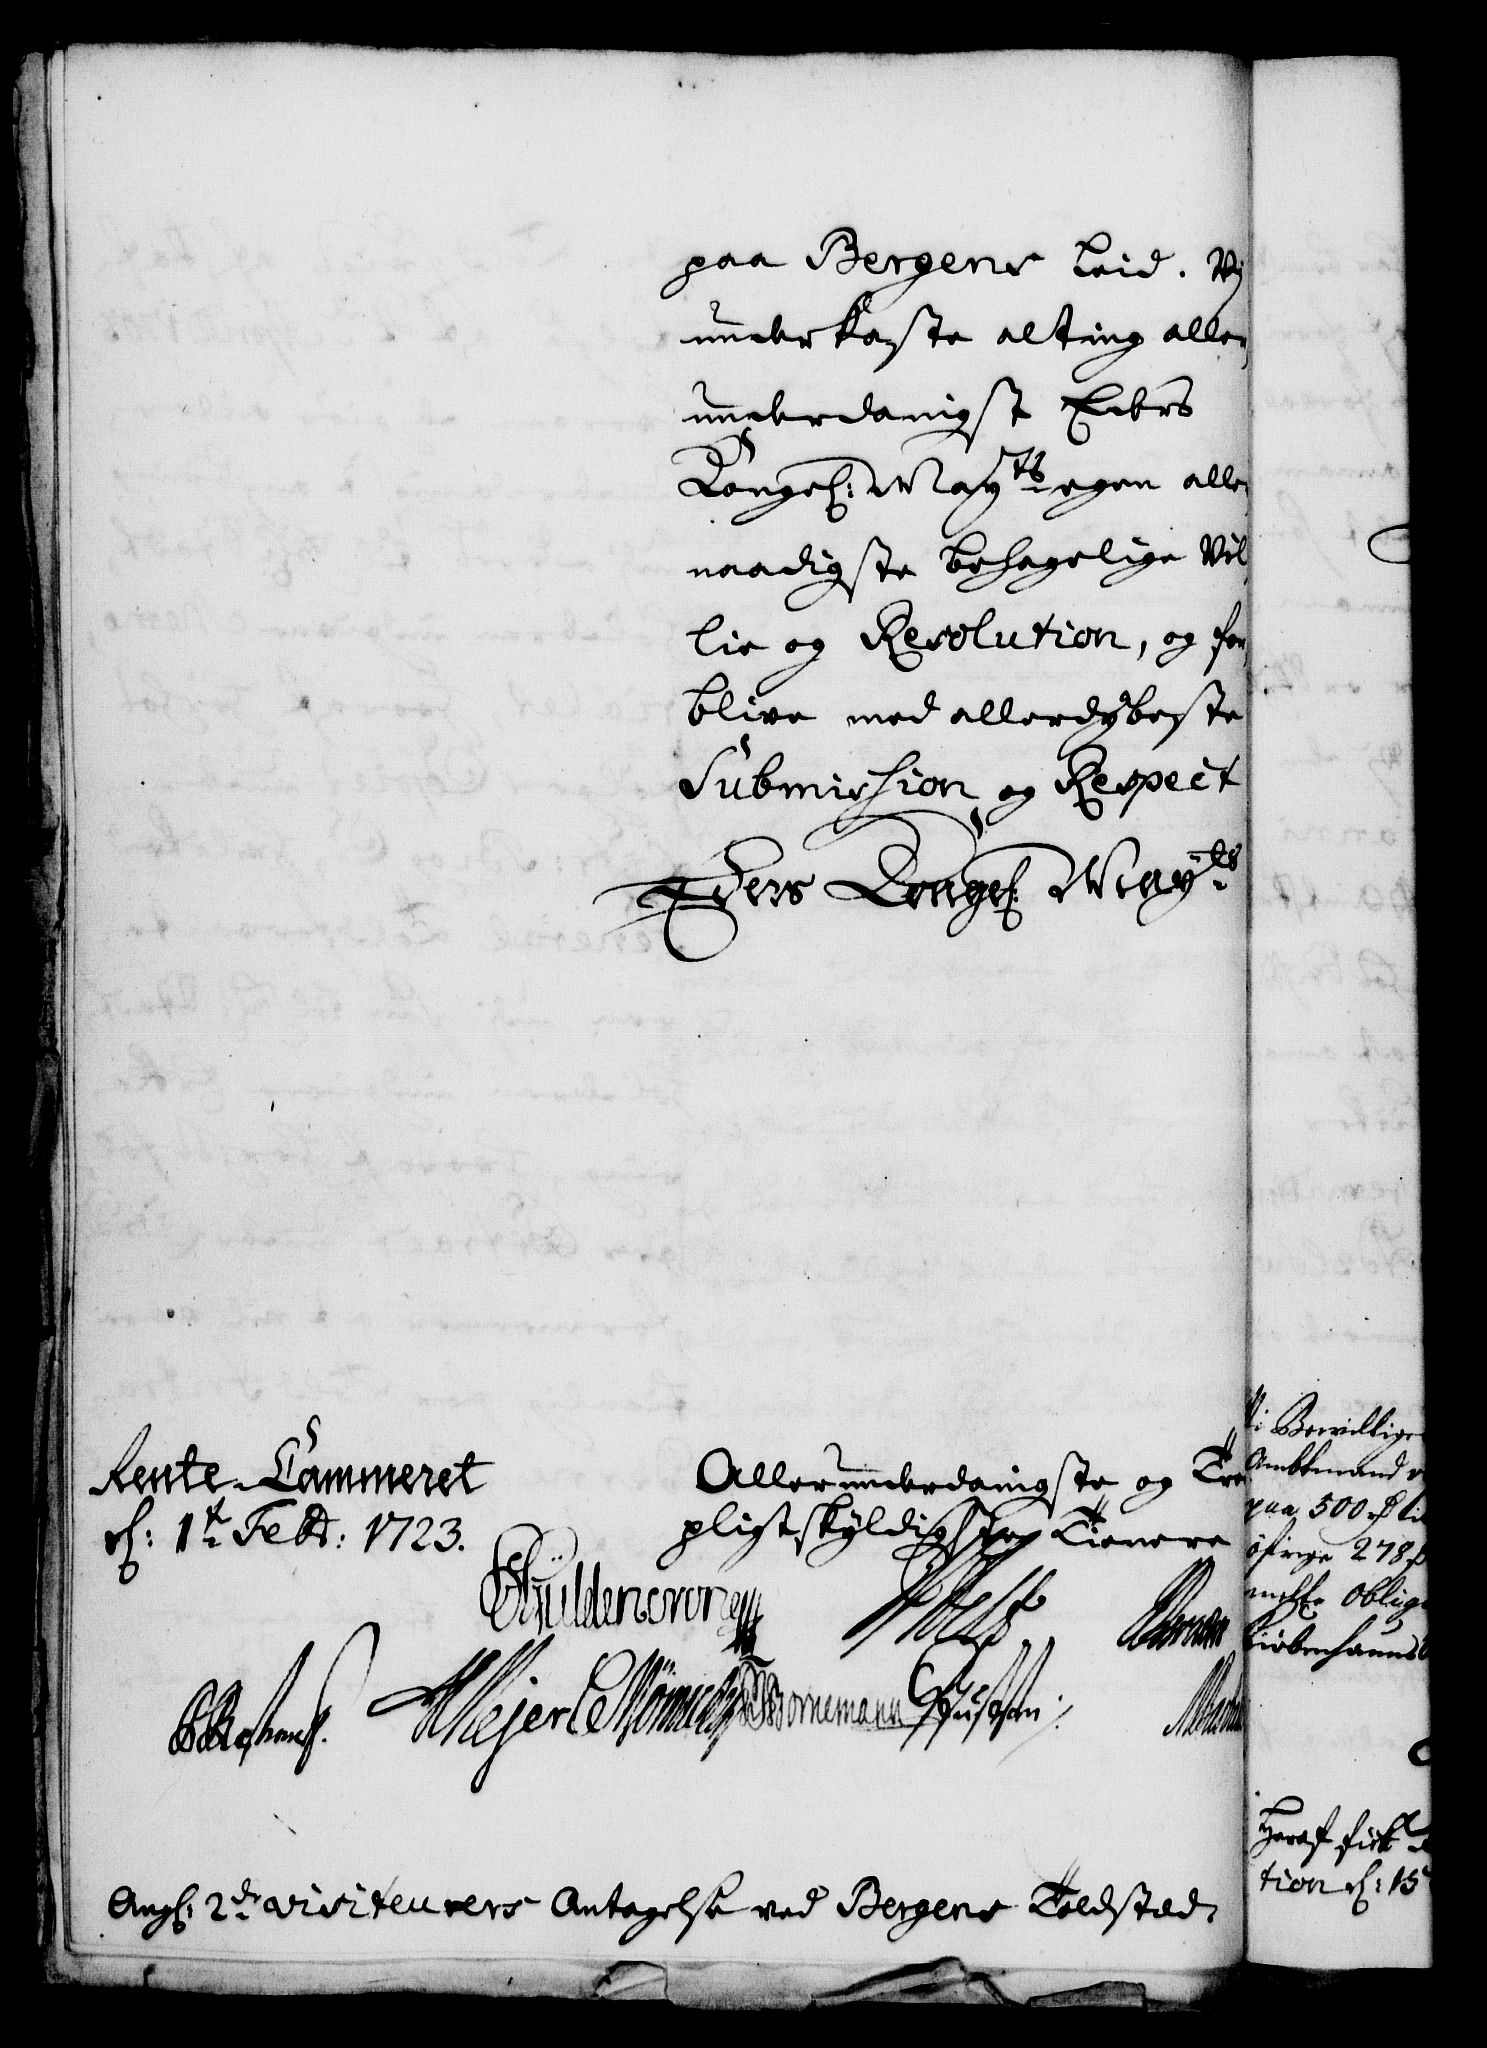 paa Bergens leid. Vi
underkaste alting aller,
underdanigst Eders
Kongel: Mayts egen aller
naadigste behagelige Vil,
lie og Resolution, og for,
blive med allerdybeste
Submission og Respect
Eders Kongel: Mayts
Rente-Cammeret
d: 1te Febr: 1723.
Allerunderdanigste og Tro
pligtskyldigste Tienere
Güldencrone
Bornemann
Angl: 2de Visiteurers Antagelse ved Bergens Toldsted.
Vi Bevillige
Ambtmand
paa 500
øfrige 278
Kiøbenhavns
Heraf fik
tion d: 15